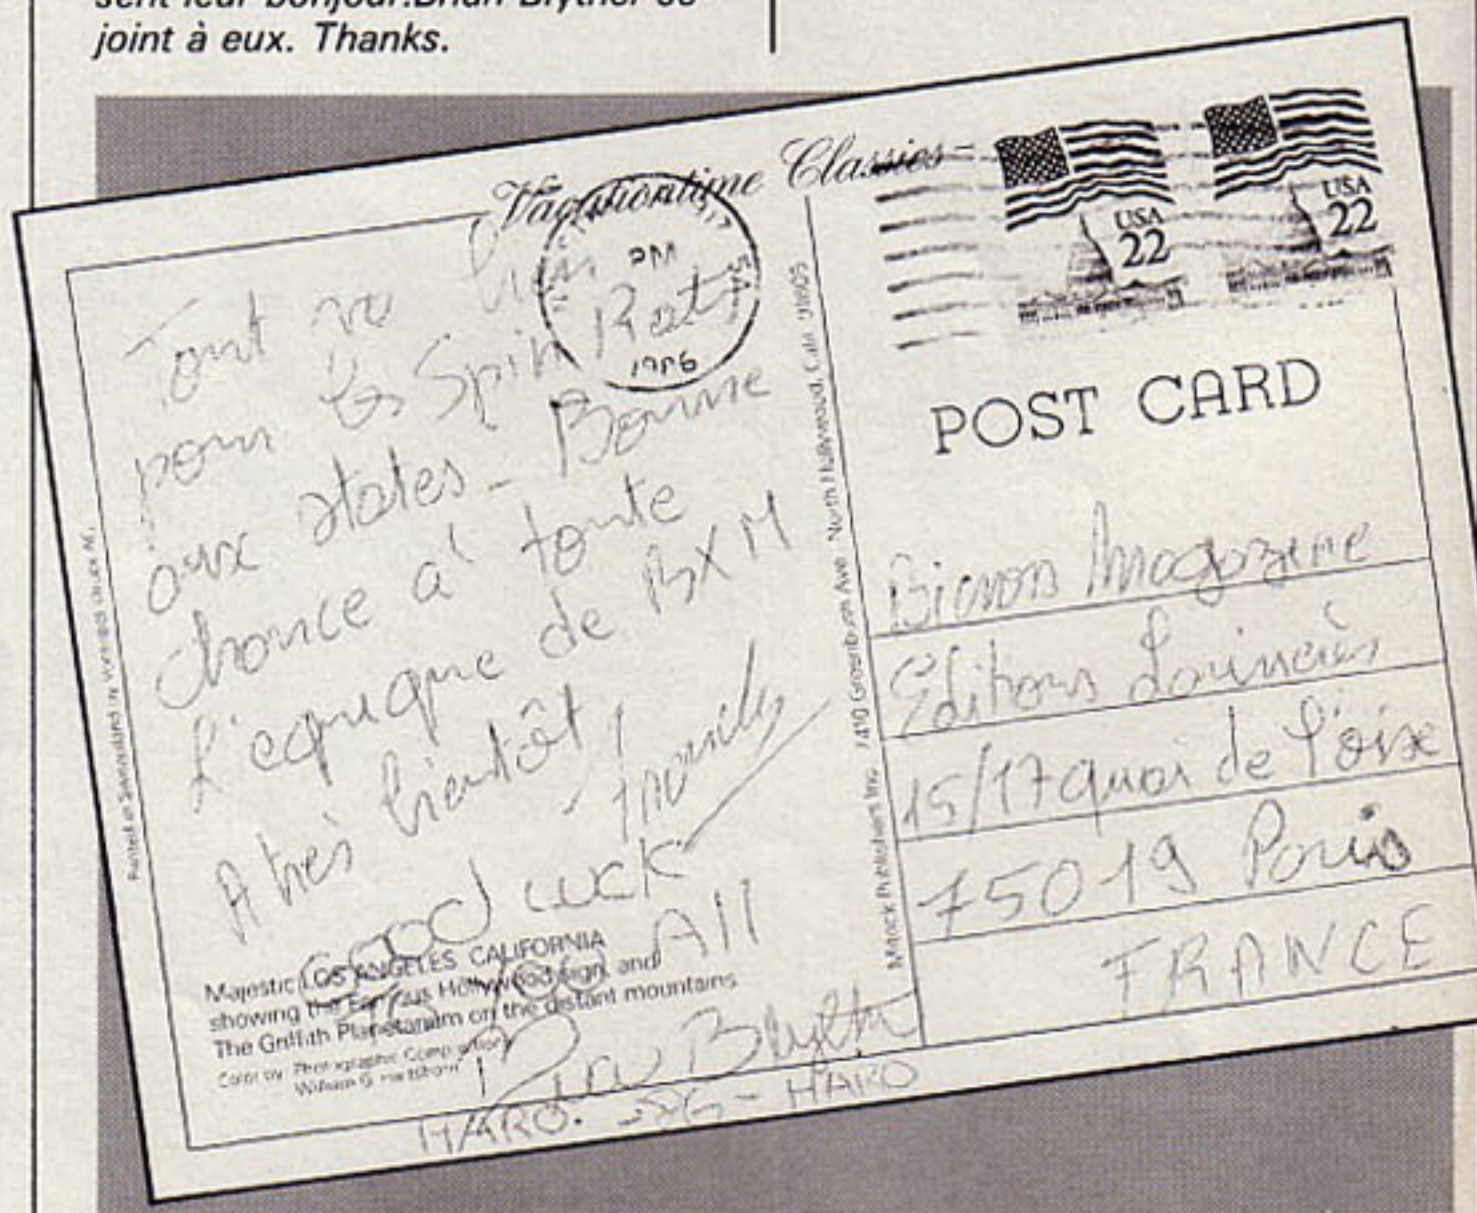 joint à eux. Thanks.
Vacationtime Classics
PM
1986
USA
22
USA
22
Tout va bien
pour les Spin Rats
aux states - Bonne
chance à toute
l'equuque de BXM
A très bientôt
Good luck
All
Brian Blyther
HARO. -86- HARO
Majestic LOS ANGELES CALIFORNIA
showing the Famous Hollywood sign and
The Griffith Planetarium on the distant mountains
Color by Photographic Compositions
William S.
Printed in
Mitock Publishers Inc. Ave North Hollywood, Calif 91605
POST CARD
Bicross Magazine
Editions Larivière
15/17 quai de l'oise
75019 Paris
FRANCE